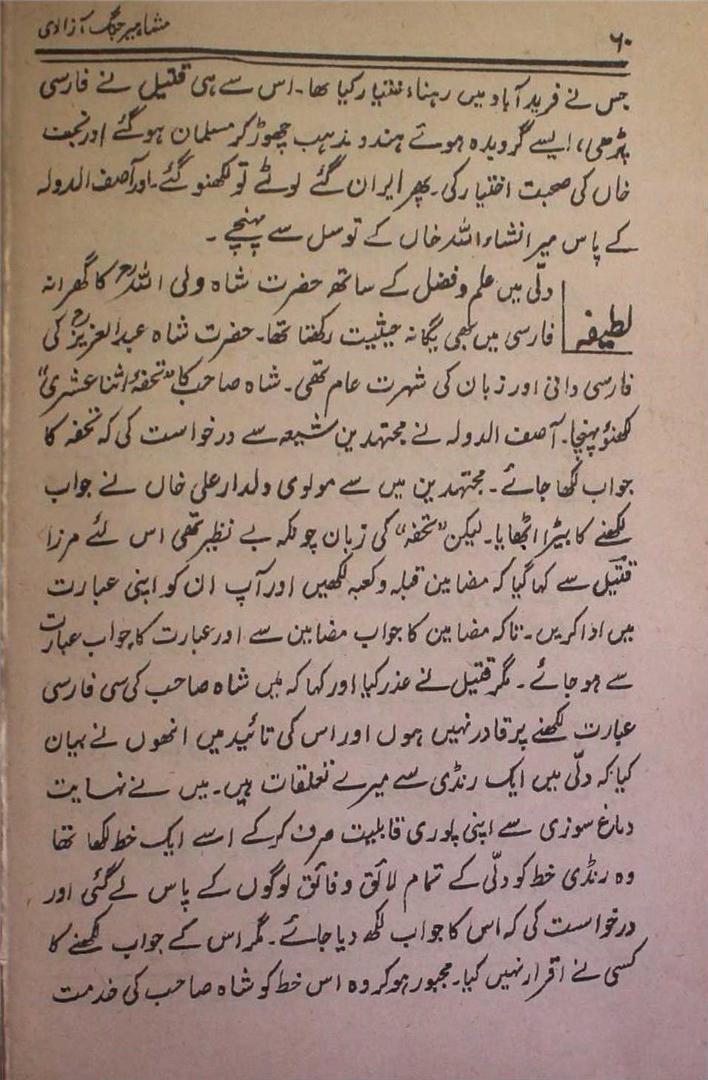 ۶۰
مشاہیر جنگ آزادی
جس نے فرید آباد میں رہنا اختیار کیا تھا۔ اس سے ہی قتیل نے فارسی
پڑھی، ایسے گرویدہ ہوئے ہندو مذہب چھوڑ کر مسلمان ہو گئے اور نجف
خاں کی صحبت اختیار کی۔ پھر ایران گئے لوٹے تو لکھنو گئے۔ اور آصف الدولہ
کے پاس میر انشاء اللہ خاں کے توسل سے پہنچے۔
لطیفہ
دلّی میں علم و فضل کے ساتھ حضرت شاہ ولی اللہؒ کا گھرانہ
فارسی میں بھی یگانہ حیثیت رکھتا تھا۔ حضرت شاہ عبدالعزیزؒ کی
فارسی دانی اور زبان کی شہرت عام تھی۔ شاہ صاحب کا "تحفۂ اثنا عشری"
لکھنؤ پہنچا۔ آصف الدولہ نے مجتہدین شیعہ سے درخواست کی کہ تحفہ کا
جواب لکھا جائے۔ مجتہدین میں سے مولوی ولدار علی خاں نے جواب
لکھنے کا بیڑا اٹھایا۔ لیکن "تحفہ" کی زبان چونکہ بے نظیر تھی اس لئے مرزا
قتیل سے کہا گیا کہ مضامین قبلہ و کعبہ لکھیں اور آپ ان کو اپنی عبارت
میں ادا کریں۔ تاکہ مضامین کا جواب مضامین سے اور عبارت کا جواب عبارت
سے ہو جائے۔ مگر قتیل نے عذر کیا اور کہا کہ میں شاہ صاحب کی سی فارسی
عبارت لکھنے پر قادر نہیں ہوں اور اس کی تائید میں انھوں نے بیان
کیا کہ دلّی میں ایک رنڈی سے میرے تعلقات ہیں۔ میں نے نہایت
دماغ سوزی سے اپنی پوری قابلیت صرف کر کے اسے ایک خط لکھا تھا
وہ رنڈی خط کو دلّی کے تمام لائق و فائق لوگوں کے پاس لے گئی اور
درخواست کی کہ اس کا جواب لکھ دیا جائے۔ مگر اس کے جواب لکھنے کا
کسی نے اقرار نہیں کیا۔ مجبور ہو کر وہ اس خط کو شاہ صاحب کی خدمت